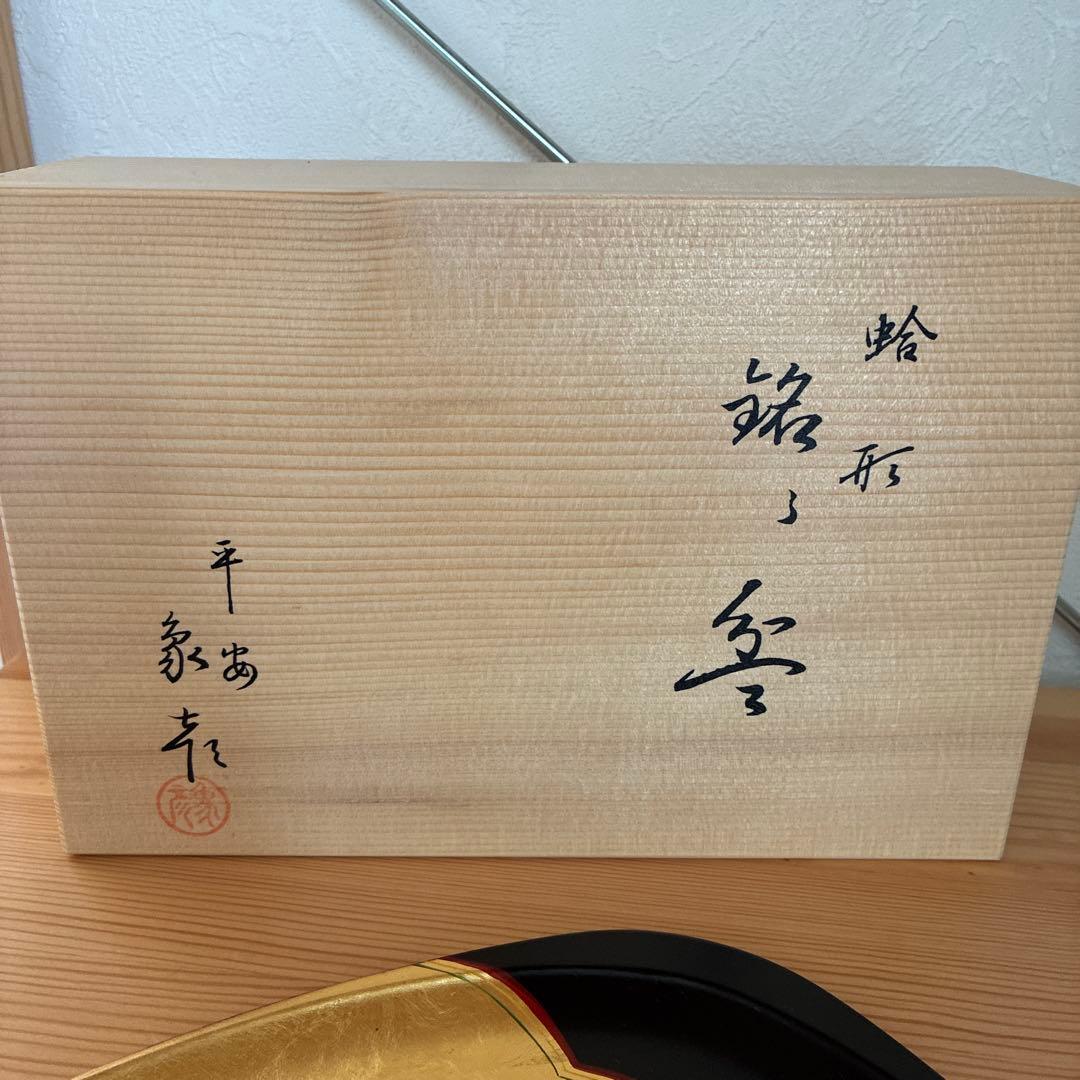 蛤形
銘々盆
平安
象彦